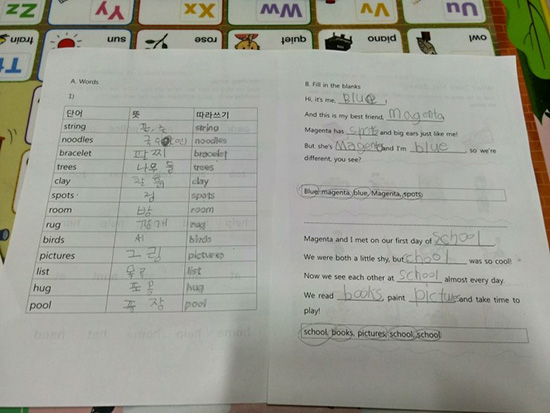 Zz
Xx
Ww
Vv
Uu
train
sun
rose
quiet
piano
owl
A. Words.
1)
단어 뜻 따라쓰기
string string
noodles 국수(면) noodles
bracelet 팔찌 bracelet
trees 나무들 trees
clay clay
spots 점 spots
room 방 room
rug rug
birds 새 birds
pictures 그림 pictures
list list
hug 포옹 hug
pool pool
B. Fill in the blanks
Hi, it's me, Blue !
And this is my best friend, Magenta
Magenta has spots and big ears just like me!
But she's Magenta and I'm blue , so we're
different, you see?
Blue, magenta, blue, Magenta, spots
Magenta and I met on our first day of school
We were both a little shy, but school was so cool!
Now we see each other at school almost every day.
We read books, paint picture and take time to
play!
school, books, pictures, school, school